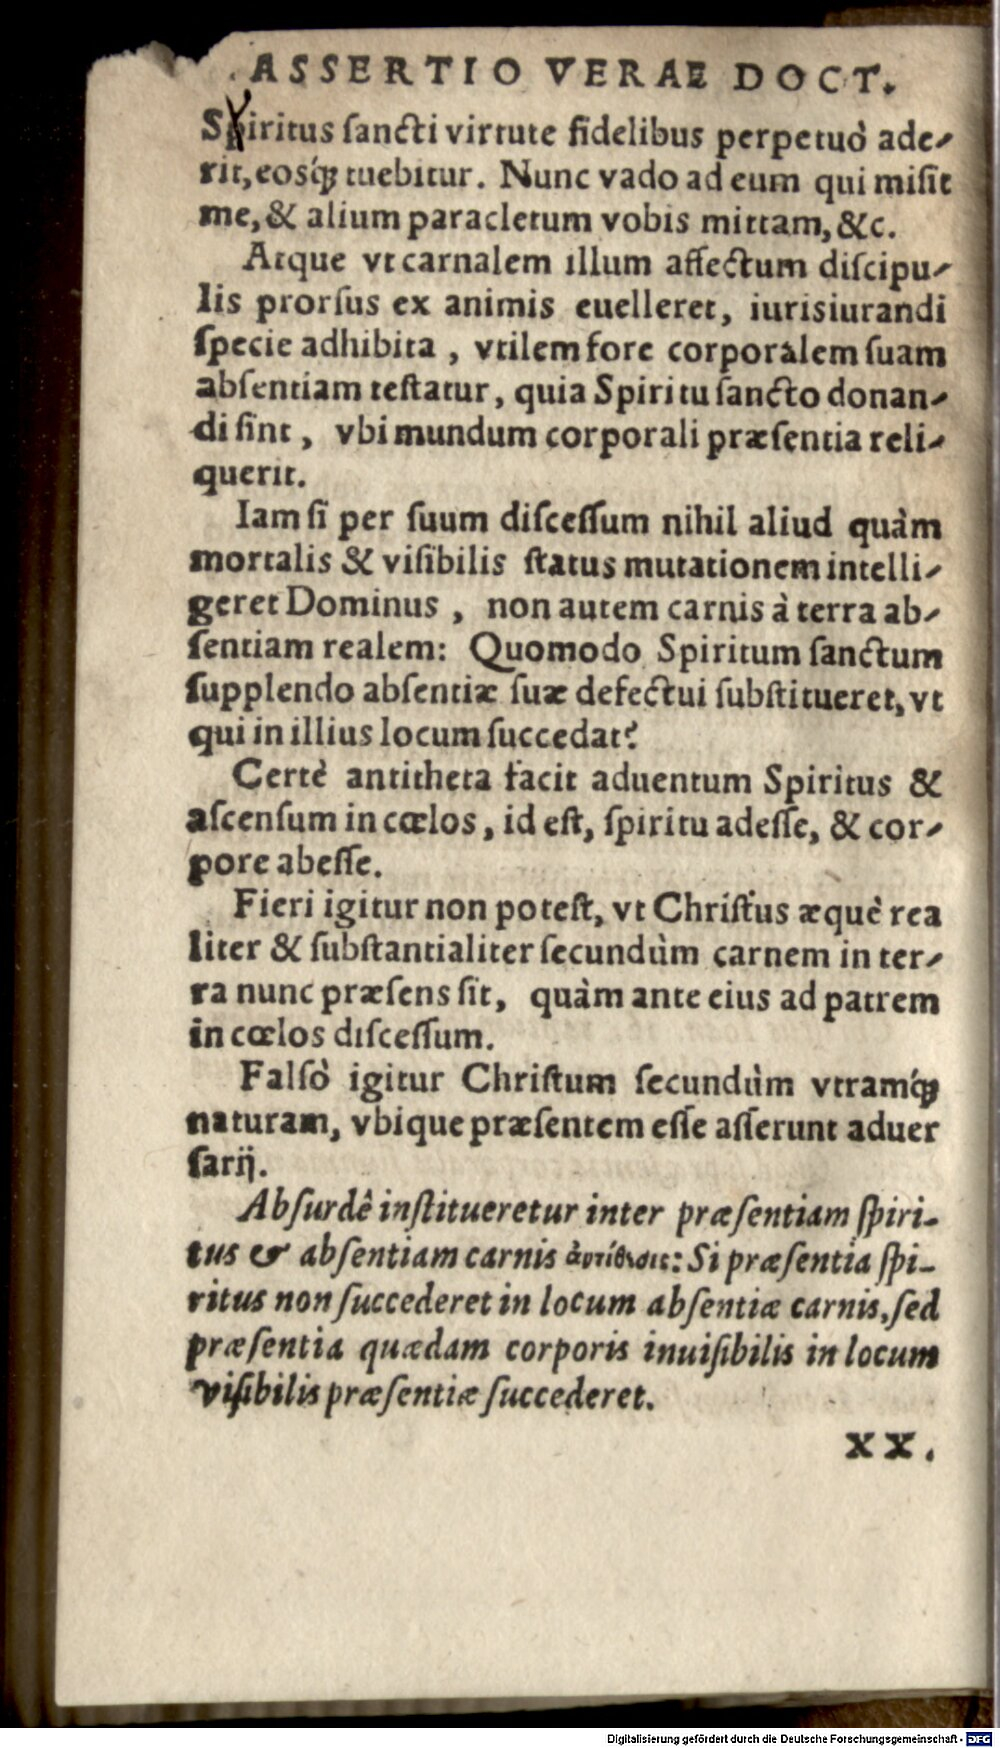 ASSERTIO VERAE DOCT.
Spiritus ſancti virtute fidelibus perpetuò ade-
rit, eosq́ꝫ tuebitur. Nunc vado ad eum qui miſit
me, & alium paracletum vobis mittam, &c.
Atque vt carnalem illum affectum diſcipu-
lis prorſus ex animis euelleret, iurisiurandi
ſpecie adhibita , vtilem fore corporalem ſuam
abſentiam teſtatur, quia Spiritu ſancto donan-
di ſint , vbi mundum corporali præſentia reli-
querit.
Iam ſi per ſuum diſceſſum nihil aliud quàm
mortalis & viſibilis ſtatus mutationem intelli-
geret Dominus , non autem carnis à terra ab-
ſentiam realem: Quomodo Spiritum ſanctum
ſupplendo abſentiæ ſuæ defectui ſubſtitueret, vt
qui in illius locum ſuccedat?
Certè antitheta facit aduentum Spiritus &
aſcenſum in cœlos, id eſt, ſpiritu adeſſe, & cor-
pore abeſſe.
Fieri igitur non poteſt, vt Chriſtus æquè rea
liter & ſubſtantialiter ſecundùm carnem in ter-
ra nunc præſens ſit, quàm ante eius ad patrem
in cœlos diſceſſum.
Falſò igitur Chriſtum ſecundùm vtramq́ꝫ
naturam, vbique præſentem eſſe aſſerunt aduer
ſarij.
Abſurdê inſtitueretur inter præſentiam ſpiri-
tus & abſentiam carnis ἀντίθεσις: Si præſentia ſpi-
ritus non ſuccederet in locum abſentiæ carnis, ſed
præſentia quædam corporis inuiſibilis in locum
viſibilis præſentiæ ſuccederet.
XX.
Digitalisierung gefördert durch die Deutsche Forschungsgemeinschaft - DFG